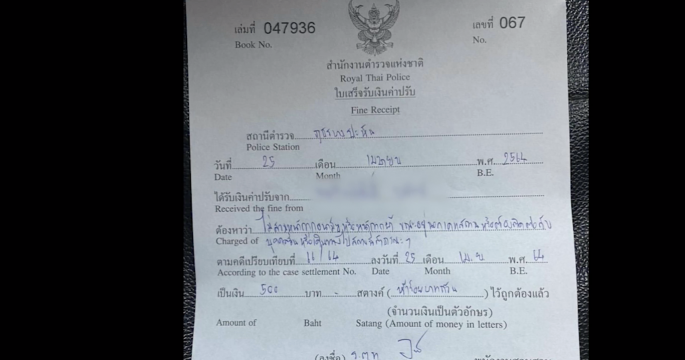 เล่มที่ 047936
เลขที่ 067
Book No.
No.
สำนักงานตำรวจแห่งชาติ
Royal Thai Police
ใบเสร็จรับเงินค่าปรับ
Fine Receipt
สถานีตำรวจ
Police Station
วันที่ 25 เดือน เมษายน พ.ศ. 2564
Date Month B.E.
ได้รับเงินค่าปรับจาก
Received the fine from
ต้องหาว่า ไม่สวมหน้ากากอนามัยหรือหน้ากากผ้า
Charged of
ตามคดีเปรียบเทียบที่ 11/64 ลงวันที่ 25 เดือน เม.ย พ.ศ. 64
According to the case settlement No. Date Month B.E.
เป็นเงิน 500 บาท - สตางค์ (ห้าร้อยบาทถ้วน) ไว้ถูกต้องแล้ว
(จำนวนเงินเป็นตัวอักษร)
Amount of Baht Satang (Amount of money in letters)
(ลงชื่อ) ร.ต.ท